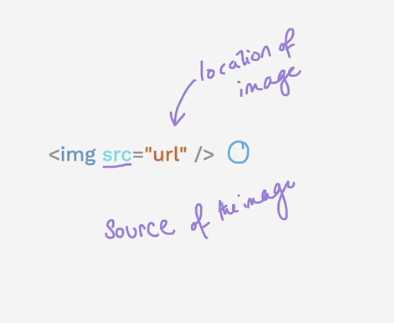 location of
image
<img src="url" />
Source of the image